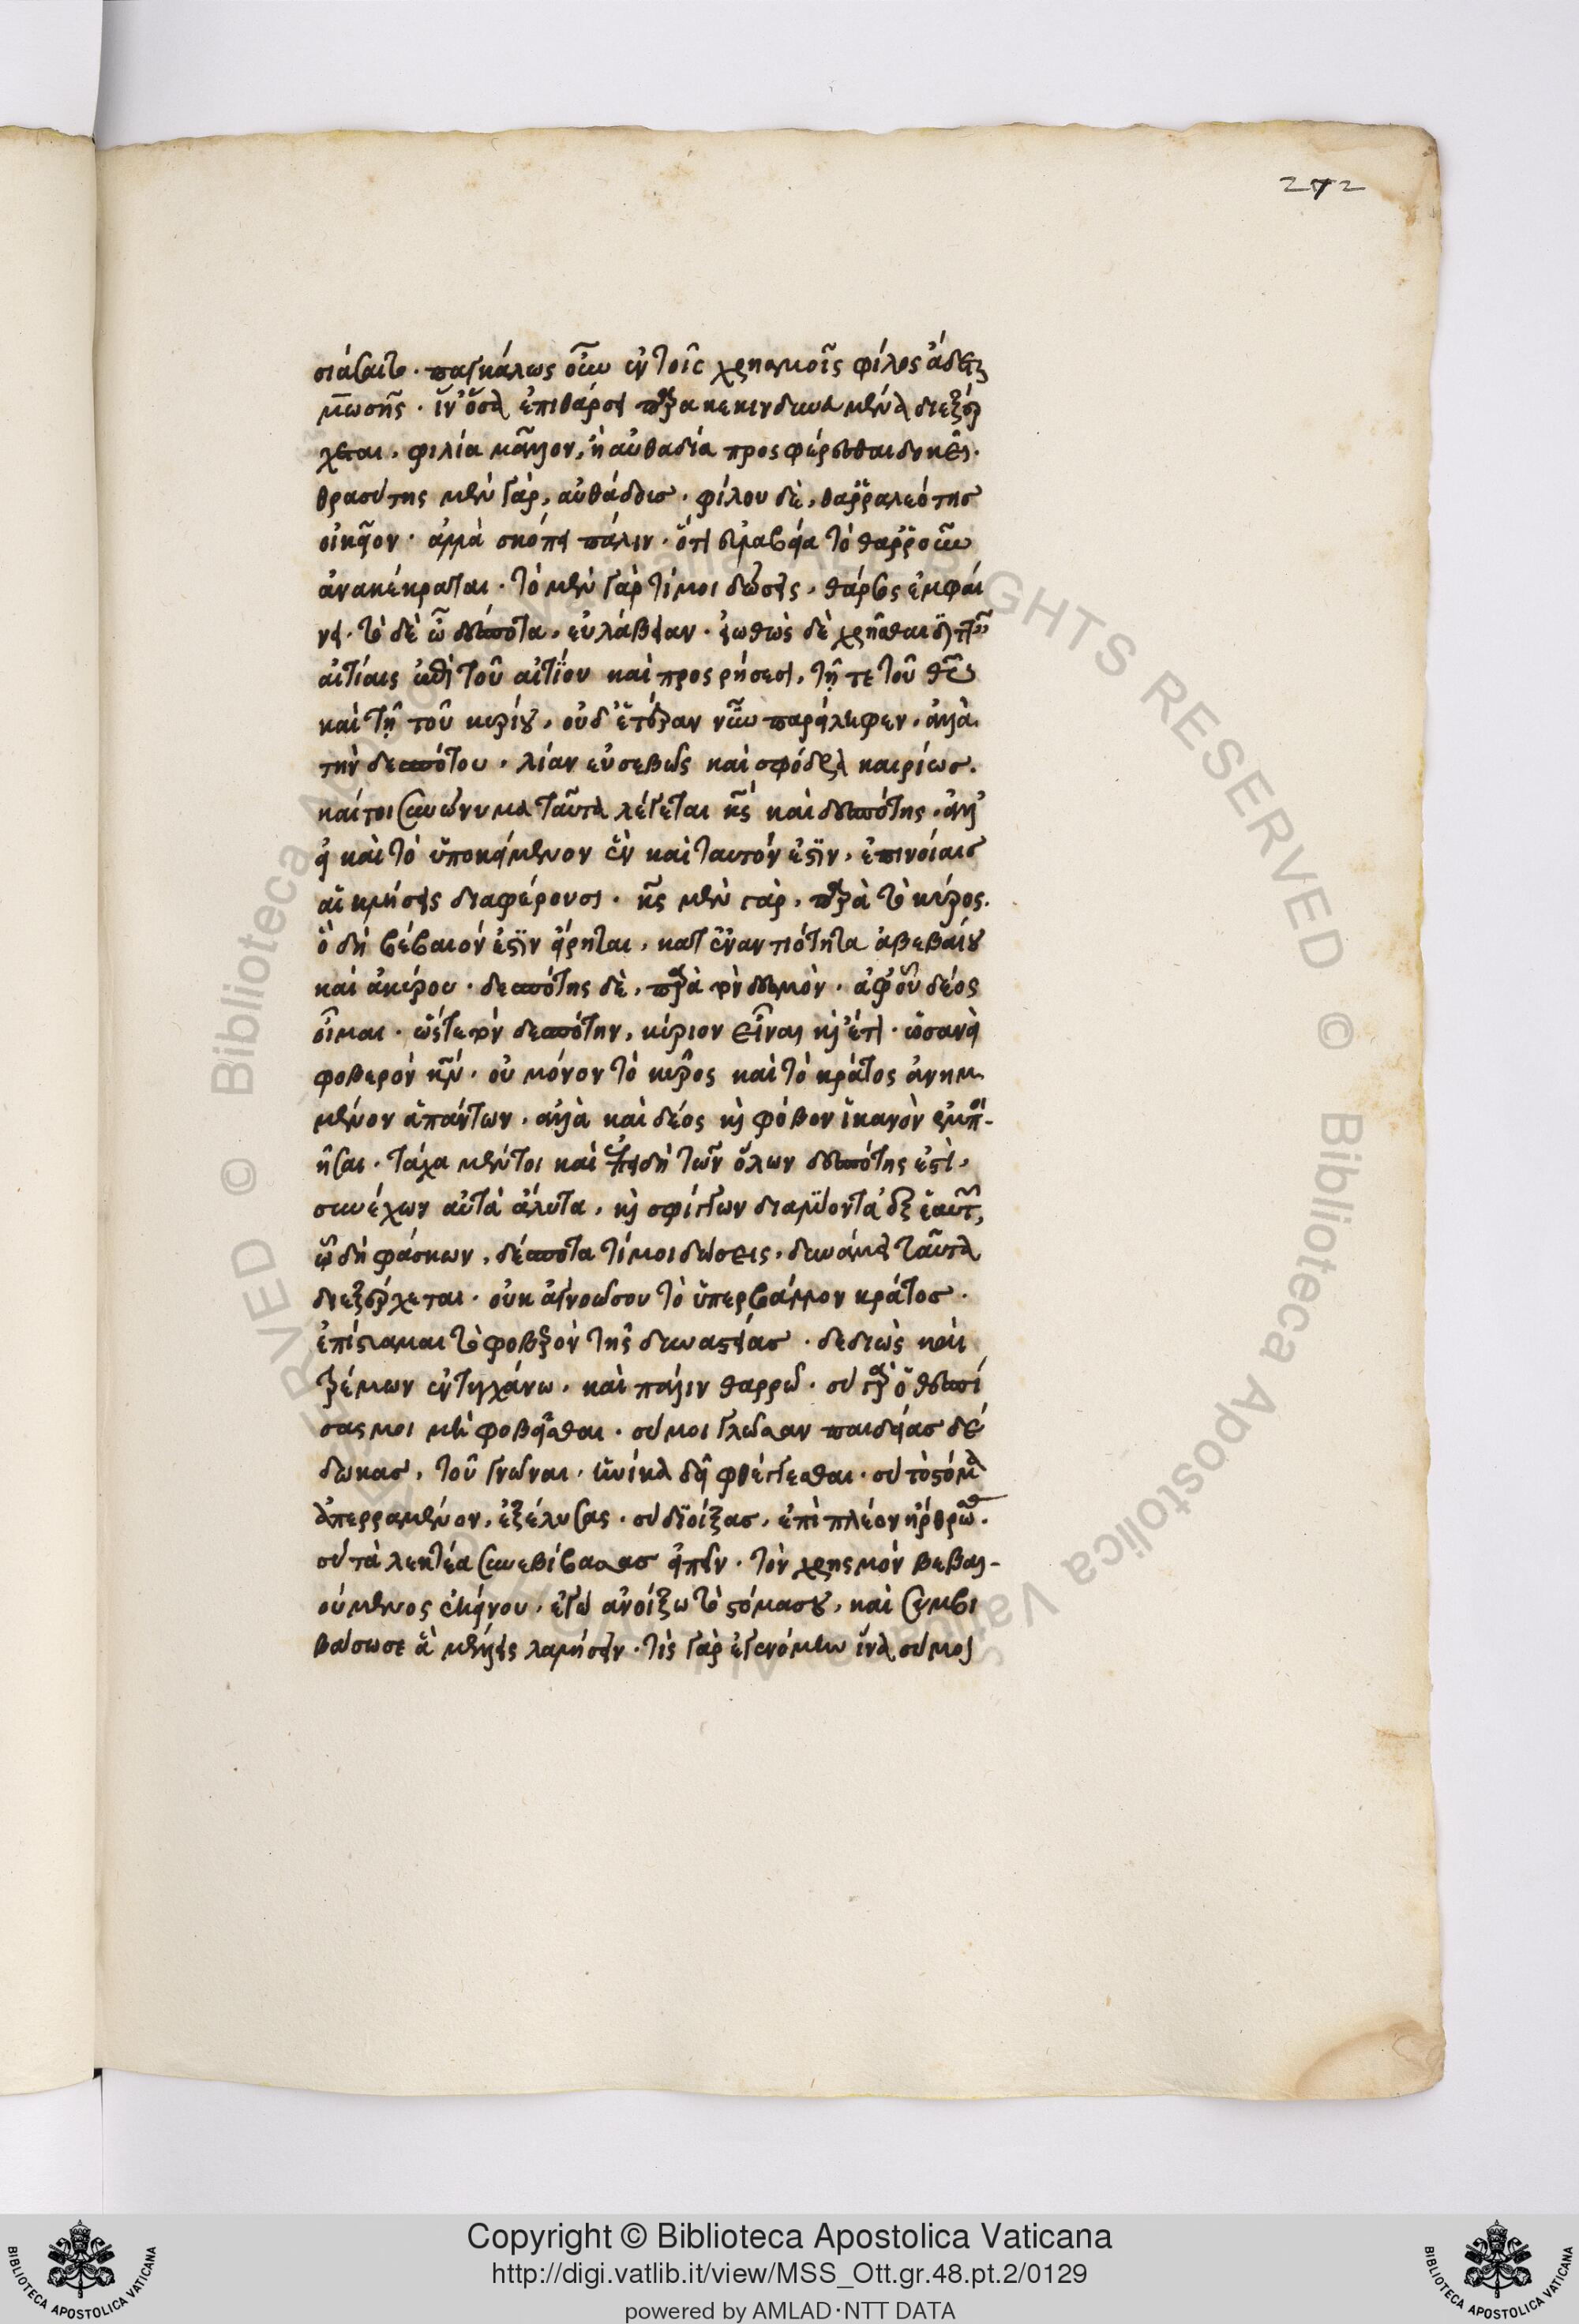 272
σιάσαιτο. παγκάλως οὖν ἐν τοῖς χρησμοῖς φίλος ᾄδεται
μωσῆς. ἵν' ὅσα ἐπὶ θάρσει παρακεκινδυνευμένα διεξέρ
χεται, φιλία μᾶλλον, ἢ αὐθαδία προσφέρεσθαι δοκῇ.
θρασύτης μὲν γὰρ, αὐθάδους. φίλου δὲ, θαρραλεότης
οἰκεῖον. ἀλλὰ σκόπει πάλιν. ὅτι εὐλαβείᾳ τὸ θαρρεῖν
ἀνακέκραται. τὸ μὲν γὰρ τί μοι δώσεις, θάρσος ἐμφαί
νει. τὸ δὲ ὦ δέσποτα, εὐλάβειαν. εἰωθὼς δὲ χρῆσθαι διτταῖς
αἰτίαις ἐπὶ τοῦ αἰτίου καὶ προσρήσεσι, τῇ τε τοῦ θεοῦ
καὶ τῇ τοῦ κυρίου, οὐδετέραν νῦν παρείληφεν, ἀλλὰ
τὴν δεσπότου. λίαν εὐσεβῶς καὶ σφόδρα καιρίως.
καίτοι συνώνυμα ταῦτα λέγεται κς καὶ δεσπότης. ἀλλ'
εἰ καὶ τὸ ὑποκείμενον ἓν καὶ ταυτόν ἐστιν, ἐπινοίαις
αἱ κλήσεις διαφέρουσι. κς μὲν γὰρ, παρὰ τὸ κῦρος.
ὃ δὴ βέβαιόν ἐστιν εἴρηται, κατ' ἐναντιότητα ἀβεβαίου
καὶ ἀκύρου. δεσπότης δὲ, παρὰ τὸν δεσμὸν. ἀφ' οὗ δέος
οἶμαι. ὥστε τὸν δεσπότην, κύριον εἶναι καὶ ἔτι. ὡσανεὶ
φοβερὸν κν. οὐ μόνον τὸ κῦρος καὶ τὸ κράτος ἀνημ
μένον ἁπάντων. ἀλλὰ καὶ δέος καὶ φόβον ἱκανὸν ἐμποι-
ῆσαι. τάχα μέντοι καὶ ἐπειδὴ τῶν ὅλων δεσπότης ἐστὶ,
συνέχων αὐτὰ ἄλυτα, καὶ σφίγγων διαλύοντα ἐξ ἑαυτῶν,
ὁ δὴ φάσκων, δέσποτα τί μοι δώσεις, δυνάμει ταῦτα
διεξέρχεται. οὐκ ἀγνοῶ σου τὸ ὑπερβάλλον κράτος.
ἐπίσταμαι τὸ φοβερὸν τῆς δυναστείας. δεδιὼς καὶ
τρέμων ἐντυγχάνω. καὶ πάλιν θαρρῶ. σὺ γὰρ ἐθέσπι
σάς μοι μὴ φοβεῖσθαι. σύ μοι γλῶσσαν παιδείας δέ
δωκας, τοῦ γνῶναι, ἡνίκα δεῖ φθέγγεσθαι. σὺ τὸ στόμα
ἀπερραμμένον, ἐξέλυσας. σὺ διοίξας, ἐπὶ πλέον ἠρθρω.
σὺ τὰ λεκτέα συνεβίβασας εἰπεῖν. τὸν χρησμὸν βεβαι-
ούμενος ἐκεῖνον. ἐγὼ ἀνοίξω τὸ στόμα σου, καὶ συμβι
βάσω σε ἃ μέλλεις λαλήσειν. τίς γὰρ ἐγενόμην ἵνα σύ μοι
Copyright © Biblioteca Apostolica Vaticana
http://digi.vatlib.it/view/MSS_Ott.gr.48.pt.2/0129
powered by AMLAD·NTT DATA